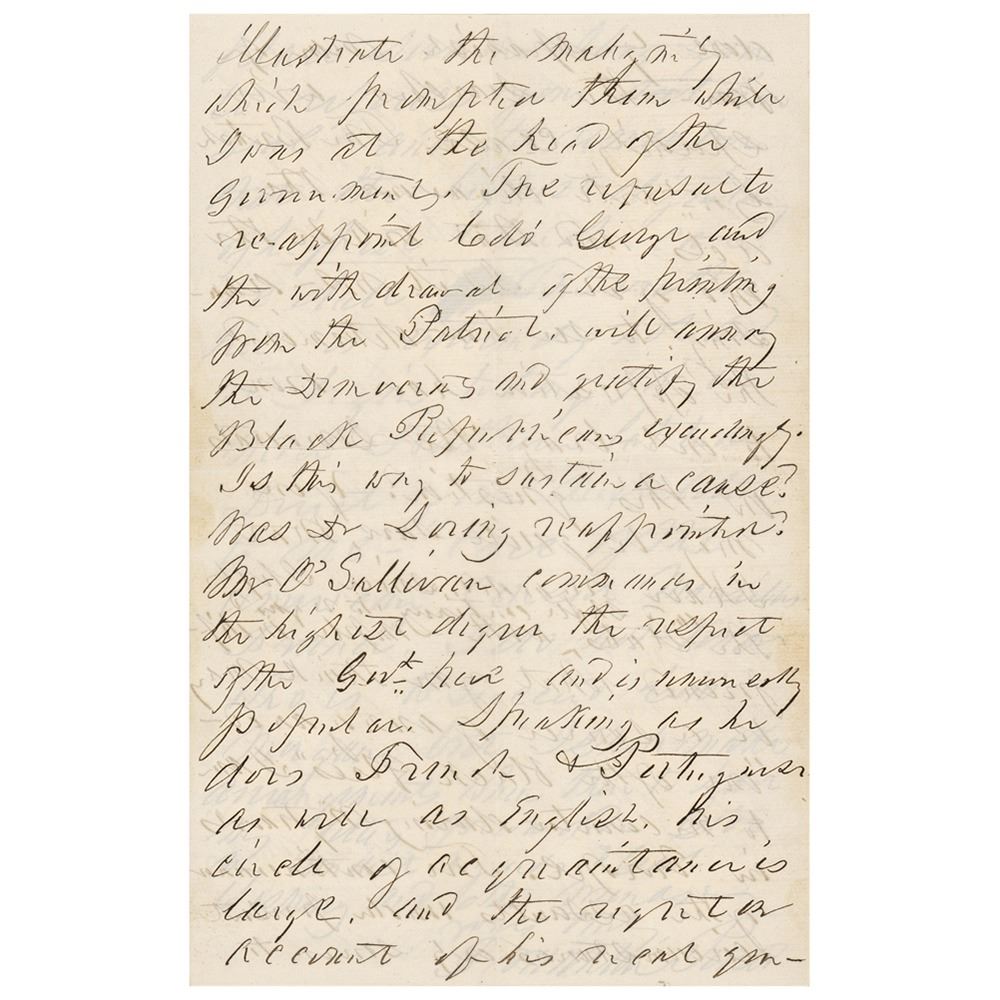 illustrate the malignity
which prompted them while
I was at the head of the
Government. The refusal to
re-appoint Colo George and
the withdrawal of the printing
from the Patriot, will annoy
the Democrats and gratify the
Black Republicans exceedingly.
Is this way to sustain a cause?
Was Dr Loring reappointed?
Mr O'Sullivan commands in
the highest degree the respect
of the Govt. here and is universally
popular. Speaking as he
does French & Portuguese
as well as English, his
circle of acquaintance is
large, and the regret on
account of his recal gen-